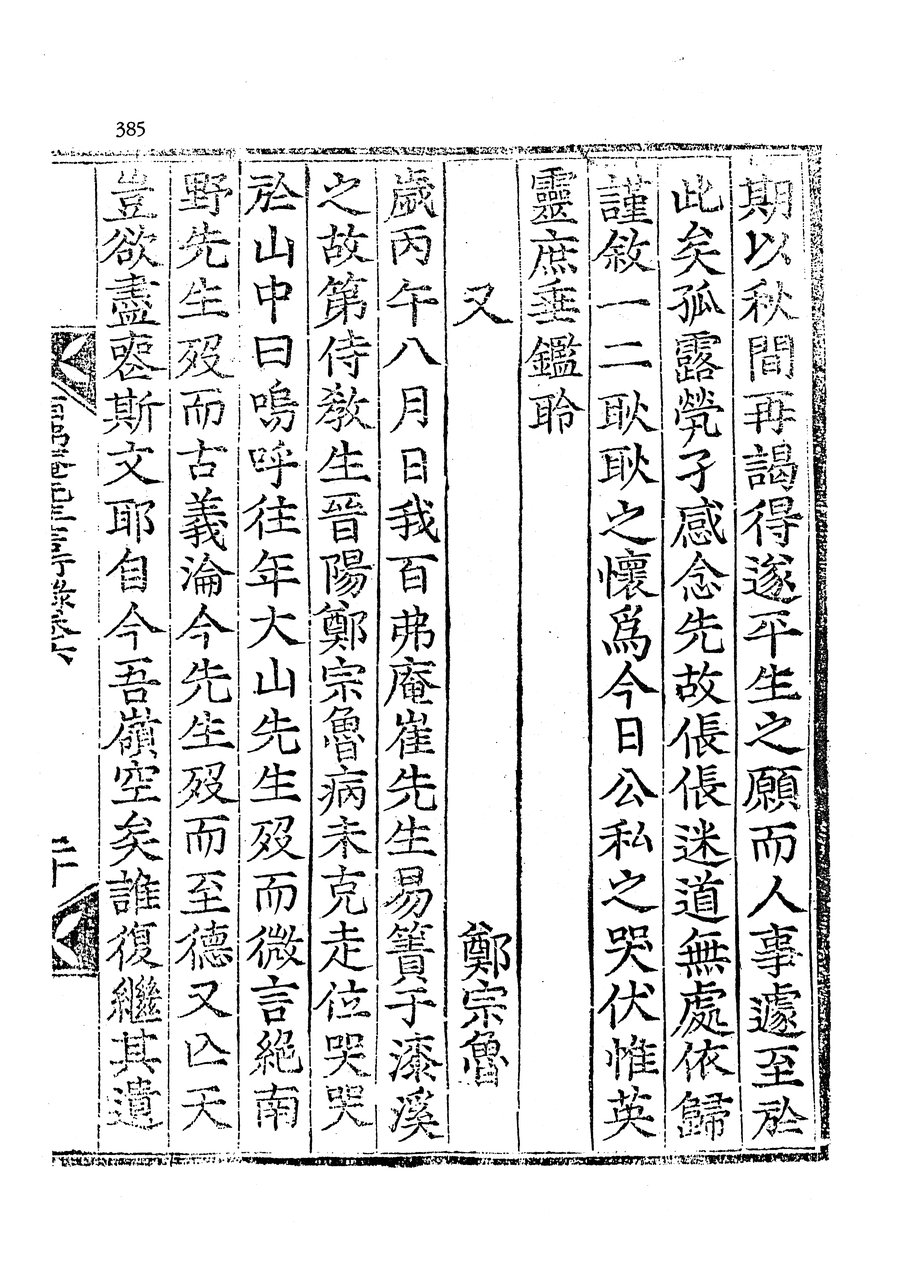 385
期以秋間再謁得遂平生之願而人事遽至於
此矣孤露煢孑感念先故倀倀迷道無處依歸
謹敘一二耿耿之懷爲今日公私之哭伏惟英
靈庶垂鑑聆
又 鄭宗魯
歲丙午八月日我百弗庵崔先生易簀于漆溪
之故第侍敎生晉陽鄭宗魯病未克走位哭哭
於山中曰嗚呼往年大山先生歿而微言絕南
野先生歿而古義淪今先生歿而至德又亾天
豈欲盡喪斯文耶自今吾嶺空矣誰復繼其遺
百弗菴先生言行錄卷六 二十